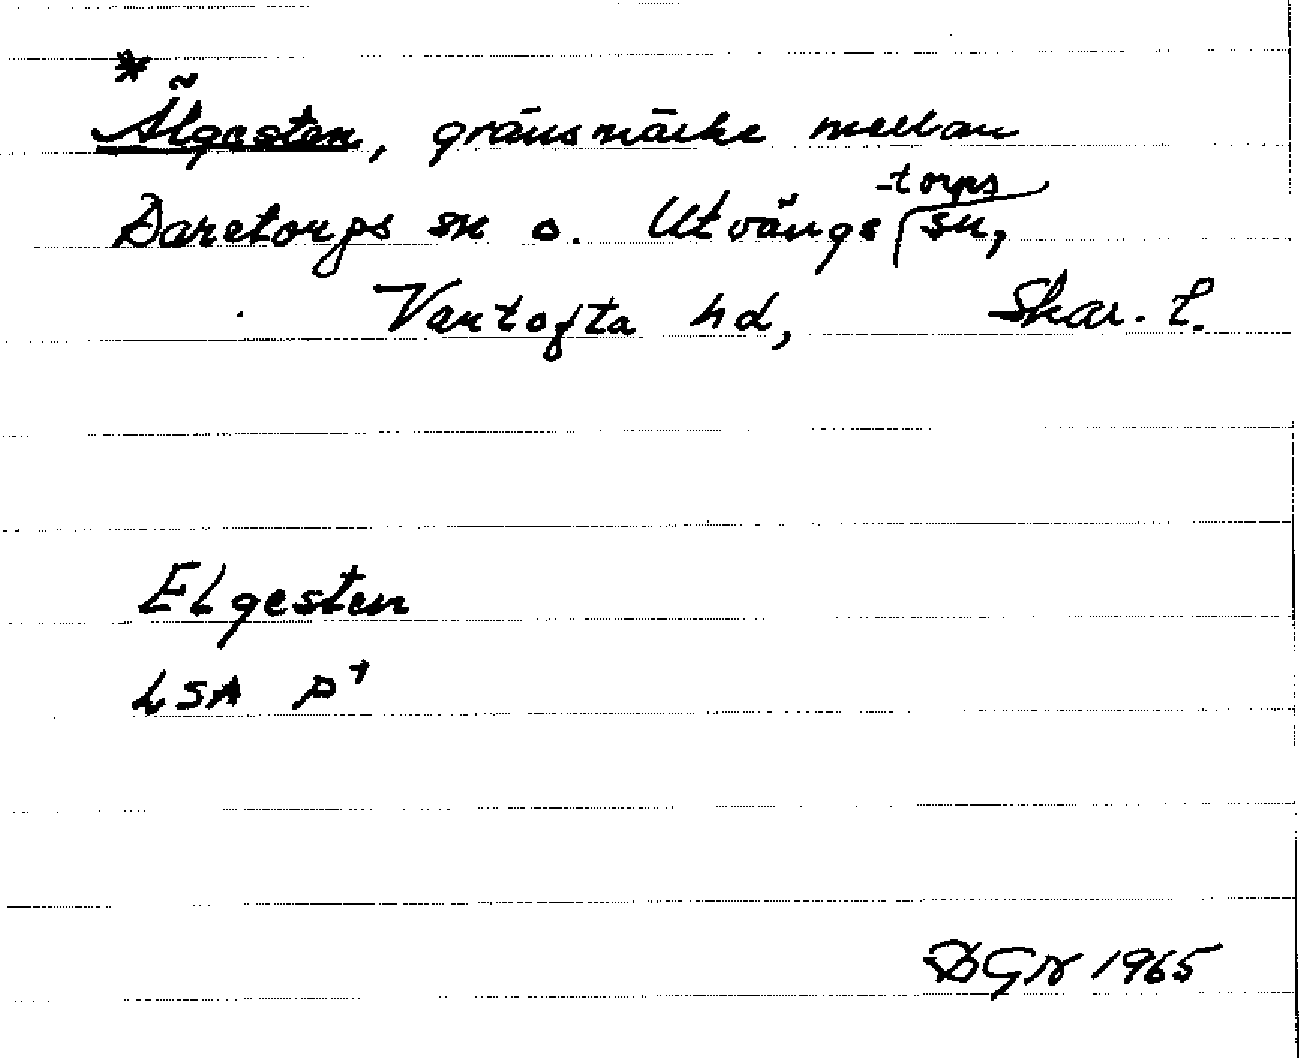 *
Älgesten, gränsmärke mellan
Daretorps sn o. Utvängetorps sn,
Vartofta hd, Skar. l.
Elgesten
LSA P
DGN 1965